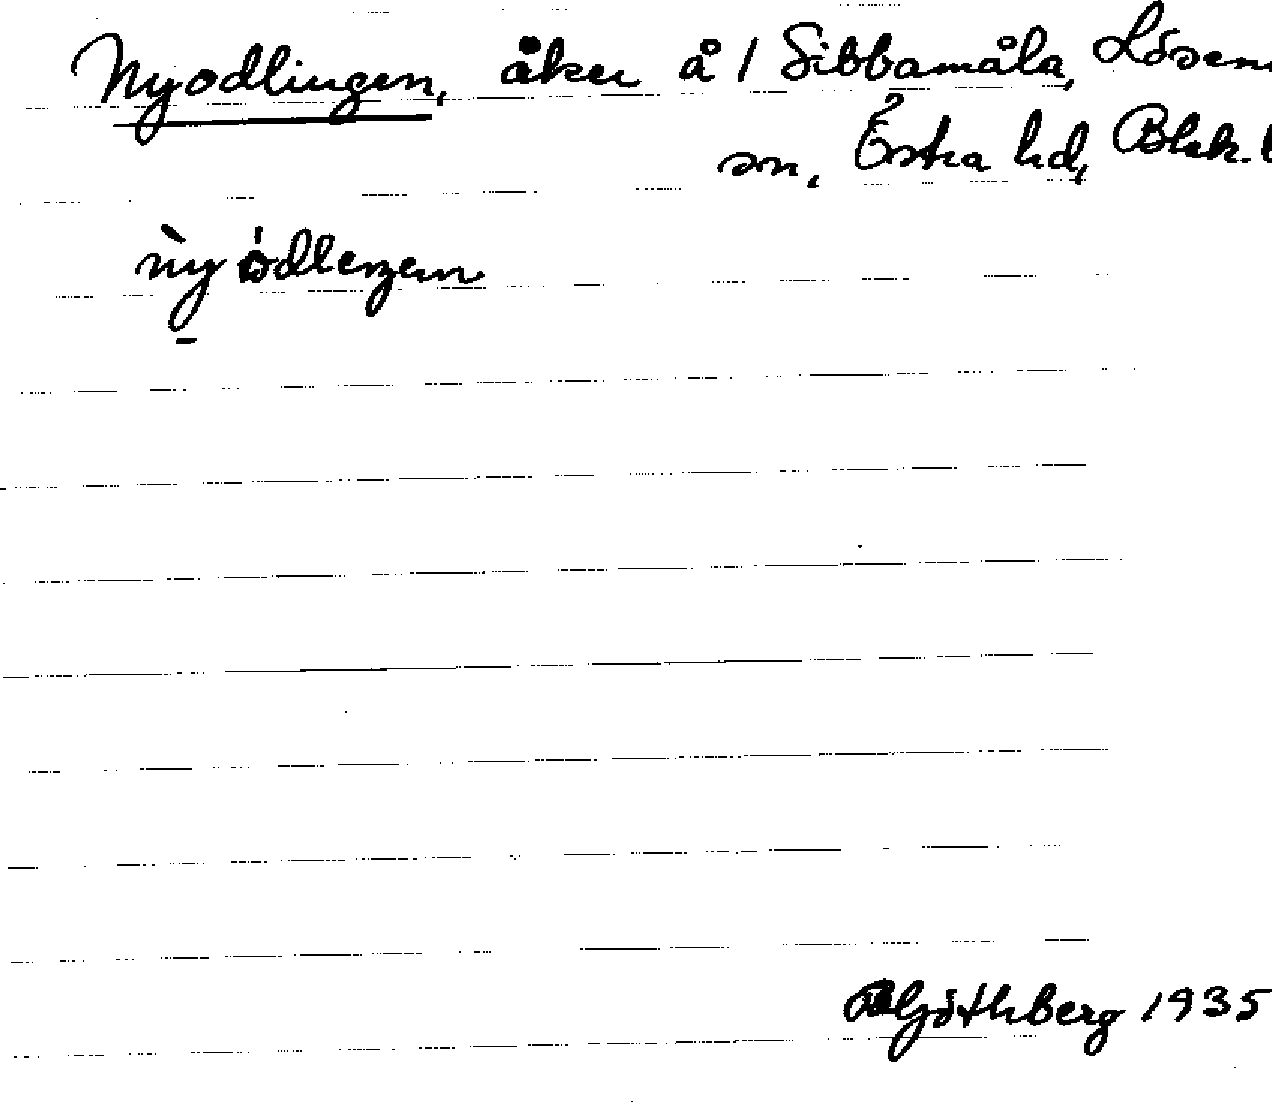 Nyodlingen, åker å 1 Sibbamåla, Lösens
sn, Östra hd, Blek. l
nỳ̠ ódleŋen
Göthberg 1935